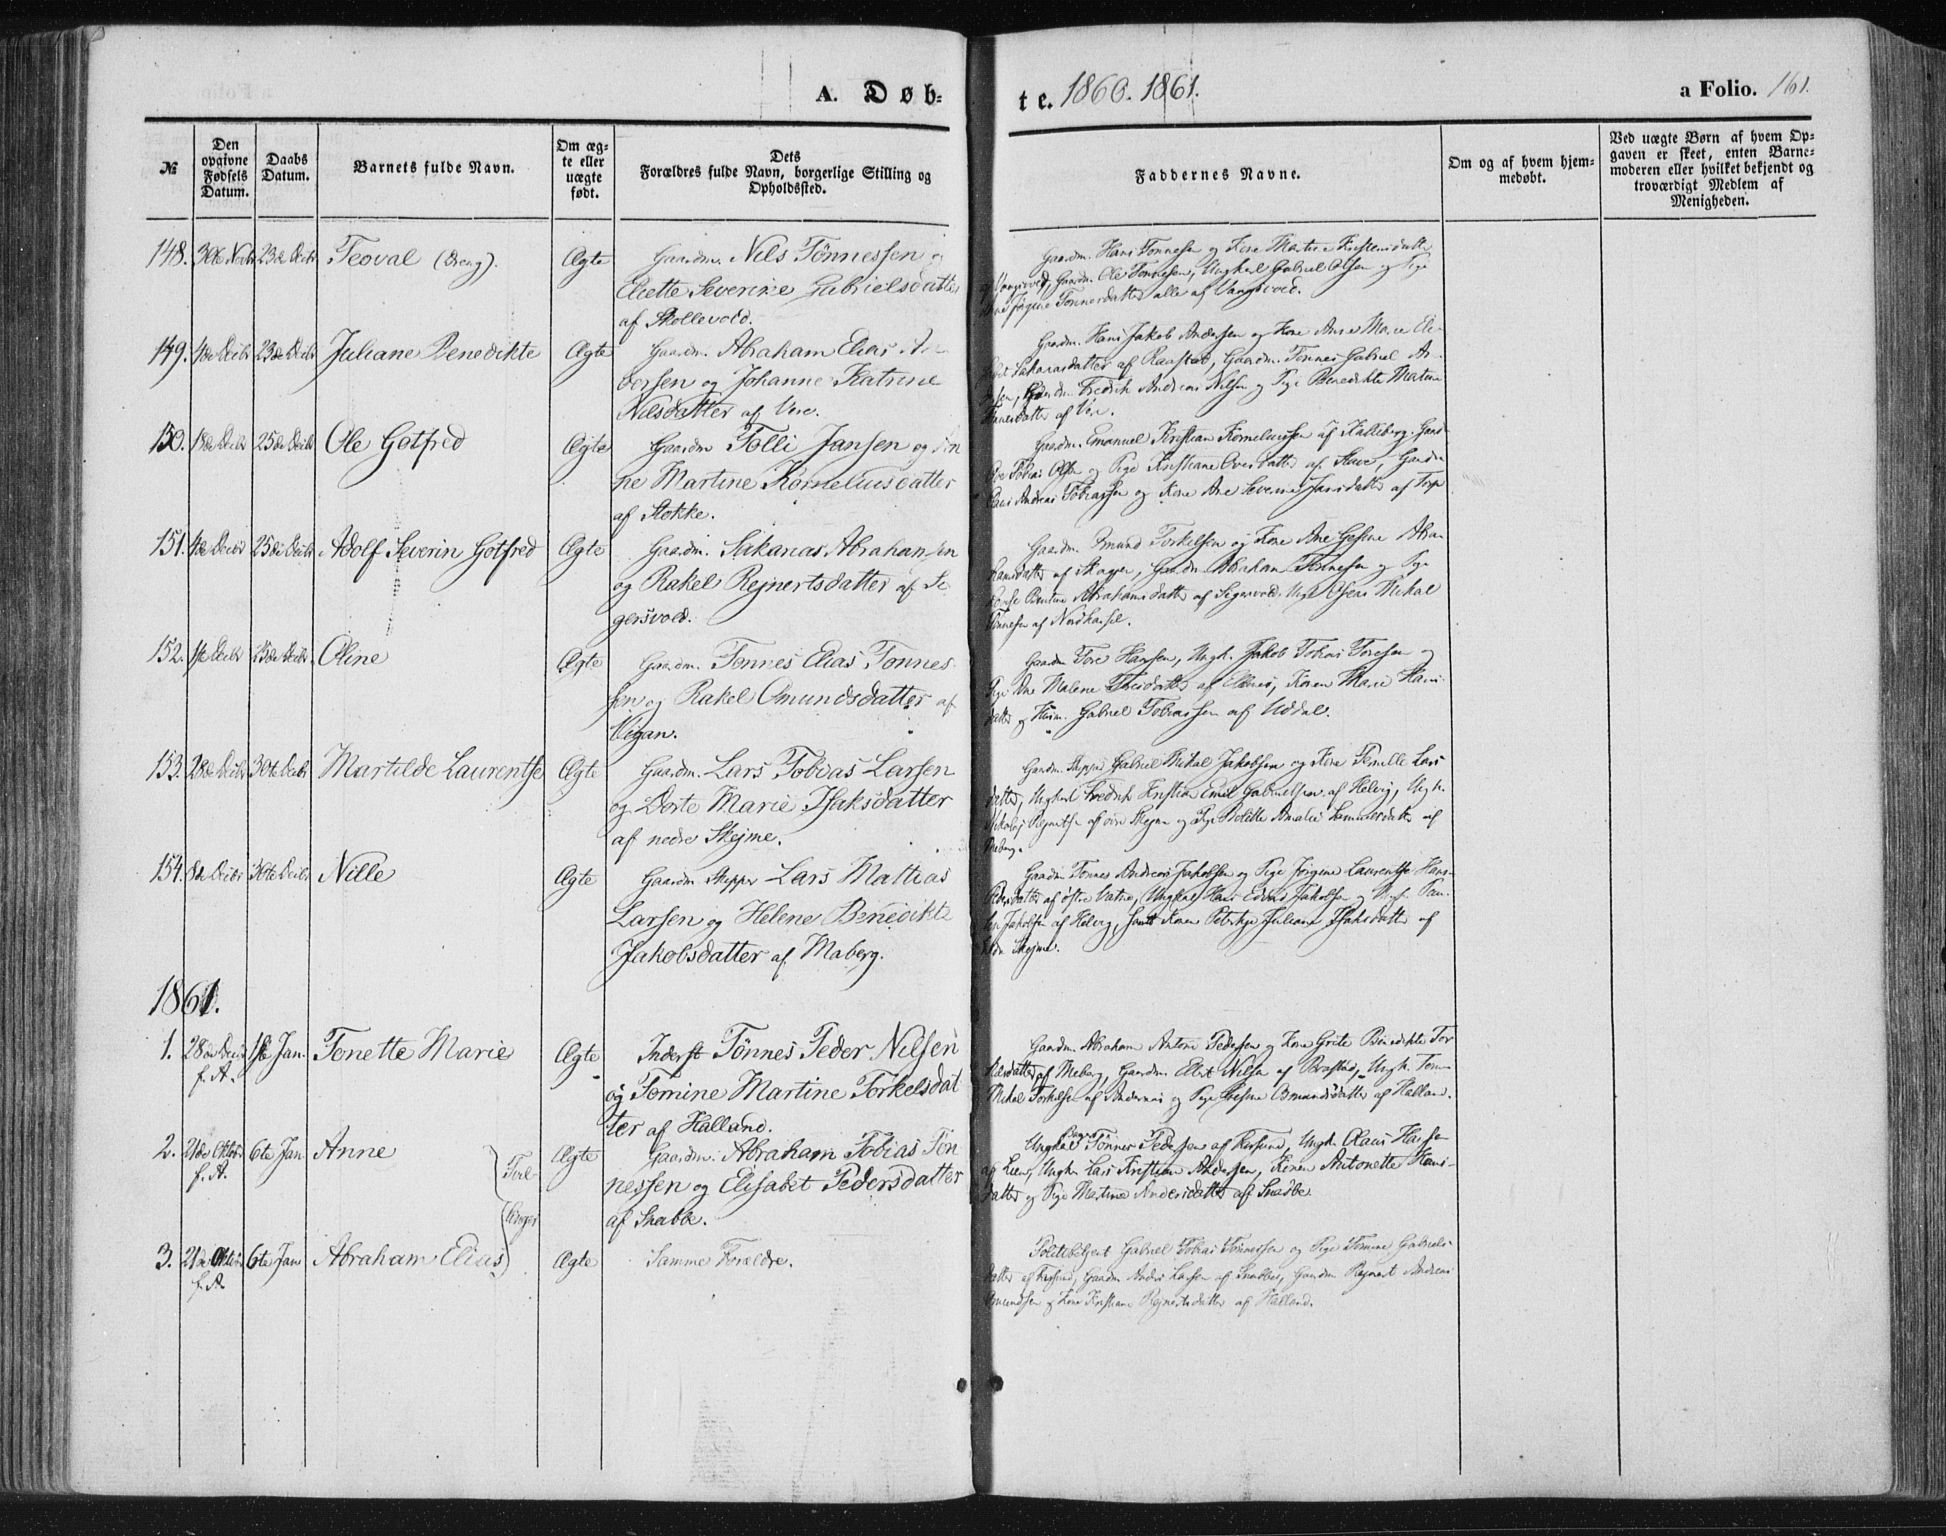 A. Døb-
te. 1860. 1861.
a Folio. 161.
№
Den opgivne Fødsels Datum.
Daabs Datum.
Barnets fulde Navn.
Om æg-te eller uægte født.
Dets
Forældres fulde Navn, borgerlige Stilling og Opholdssted.
Faddernes Navne.
Om og af hvem hjem-medøbt.
Ved uægte Børn af hvem Op-
gaven er skeet, enten Barne-
moderen eller hvilket bekjendt og
troværdigt Medlem af
Menigheden.
148. 30te Novbr 23de Decbr Teoval (Dreng). Ægte Gaardm. Nils Tønnessen og
Severine Gabrielsdatter
af Skollevold.
Gaardm. Hans Tønnesen og Kone Martine Kristensdatter
Gaardm. Ole Tønnesen, Ungkarl Gabriel Olsen og Pige
Tønnesdatter alle af Vangsvold.
149. 4de Decbr 23de Decbr Juliane Benedikte Ægte Gaardm. Abraham Elias An
dersen og Johanne Katrine
Nilsdatter af Vere.
Gaardm. Hans Jakob Andersen og Kone Anne Marie Eli-
Sakariasdatter af Raastad, Gaardm. Tønnes Gabriel An-
Fredrik Andreas Nilsen og Pige Benedikte Martine
Tønnesdatter af Vere.
150. 1ste Decbr 25de Decbr Ole Gotfred Ægte Gaardm Tolli Jansen og An
ne Martine Korneliusdatter
af Stokke.
Gaardm. Emanuel Kristian Korneliussen af Kalleberg.
Tobias Olsen og Pige Kristiane Olesdatter af Stave, Gaardm
Andreas Tobiassen og Kone Ane Severine Jansdatter af
151. 4de Decbr 25de Decbr Adolf Severin Gotfred Ægte Gaardm. Sakarias Abrahamsen
og Rakel Rejnertsdatter af Se
gersvold.
Gaardm. Omund Torkelsen og Kone Ane Gesine Abra
hamsdatter af Gaardm. Abraham Tønnesen og Pige
Bentine Abrahamsdatter af Sigersvold. Ungk. Mikal
Tønnesen af Nordhassel.
152. 1ste Decbr 25de Decbr. Oline Ægte Gaardm. Tønnes Elias Tønnes
sen og Rakel Omundsdatter af
Vigan.
Gaardm Tore Hansen, Ungk. Jakob Tobias Toresen og
Pige Ane Malene Toresdatter af Ellenes, Konen Marie Hans
datter og Husm. Gabriel Tobiassen af Uddal.
153. 28de Decbr 30te Decbr Martilde Laurentse Ægte Gaardm. Lars Tobias Larsen
og Dorte Marie Isaksdatter
af nedre Skejme.
Gaardm. Skipper Gabriel Mikal Jakobsen og Kone Pernille Lars
datter, Ungkarl Fredrik Kristian Emil Gabrielsen af Helvig, Ungk.
Rejnertsen af øvre Skejme og Pige Amalie af
Maberg.
154. 8de Decbr 30te Decbr Nille Ægte Gaardm Skipper Lars Mathias
Larsen og Helene Benedikte
Jakobsdatter af Maberg.
Gaardm Tønnes Andreas Jakobsen og Pige Jørgine Laurentse Hans-
af østre Vatne, Ungkarl Hans Edvard Jakobsen og
Jakobsen af Helvig, samt Konen Juliane Isaksdatter af
Skejme.
1861.
1. 28de Decbr f. A. 1ste Jan. Tonette Marie Ægte Inderst Tønnes Peder Nilsen
og Tomine Martine Torkelsdat
ter af Halland.
Gaardm. Abraham Anton Pedersen og Kone Grete Benedikte Tor
kelsdatter af Meberg, Gaardm. Ellert Nilsen af Brastad, Ungk. Tom
Mikal Torkelsen af og Pige Gesine Omundsdatter af Halland.
2. 21de Oktbr f. A. 6te Jan Anne Tvil- Ægte Gaardm. Abraham Tobias Tøn
nessen og Elisabet Pedersdatter
af Snabbe.
Ungkarl Tønnes Pedersen af Farsund, Ungk. Olaus Hansen
af Lien, Ungk. Lars Kristian Andersen, Konen Antonette Hans-
datter og Pige Martine Andersdatter af Snabbe
linger
3. 21de Oktbr f. A. 6te Jan Abraham Elias Ægte Samme Forældre.
Politibetjent Gabriel Tobias Tønnessen og Pige Tomine Gabriels-
datter af Farsund, Gaardm Anders Larsen af Snabbe, Gaardm Rejnert Andreas
Omundsen og Kone Kristiane Rejnertsdatter af Halland.